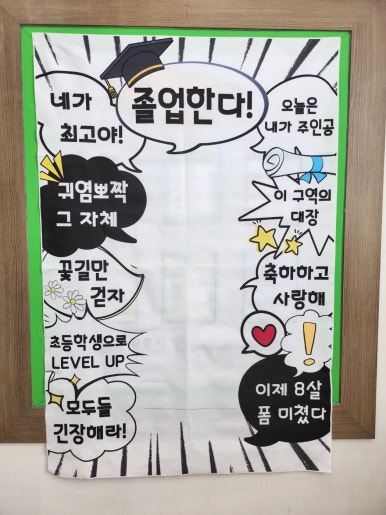 졸업한다!
네가
최고야!
오늘은
내가 주인공
귀염뽀짝
그 자체
이 구역의
대장
꽃길만
걷자
축하하고
사랑해
초등학생으로
LEVEL UP
이제 8살
폼 미쳤다
모두들
긴장해라!